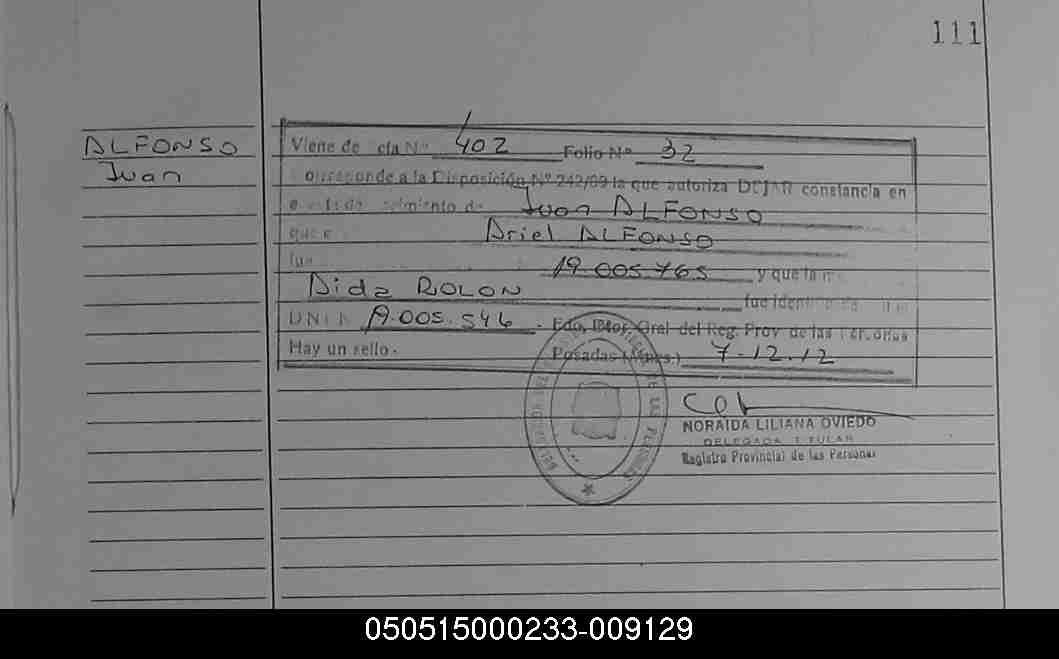 111
ALFONSO
Juan
Viene de cta Nº 402 Folio Nº 32
orresponde a la Disposición Nº 242/09 la que autoriza DEJAR constancia en
Juan ALFONSO
que Ariel ALFONSO
19.005.765 y que la m
Dida ROLON fue identi
DNI 19.005.546 - Fdo. Dtor. Gral del Reg. Prov de las Personas
Hay un sello. Posadas (Mnes.) 7-12.12
NORAIDA LILIANA OVIEDO
DELEGADA TITULAR
Registro Provincial de las Personas
050515000233-009129